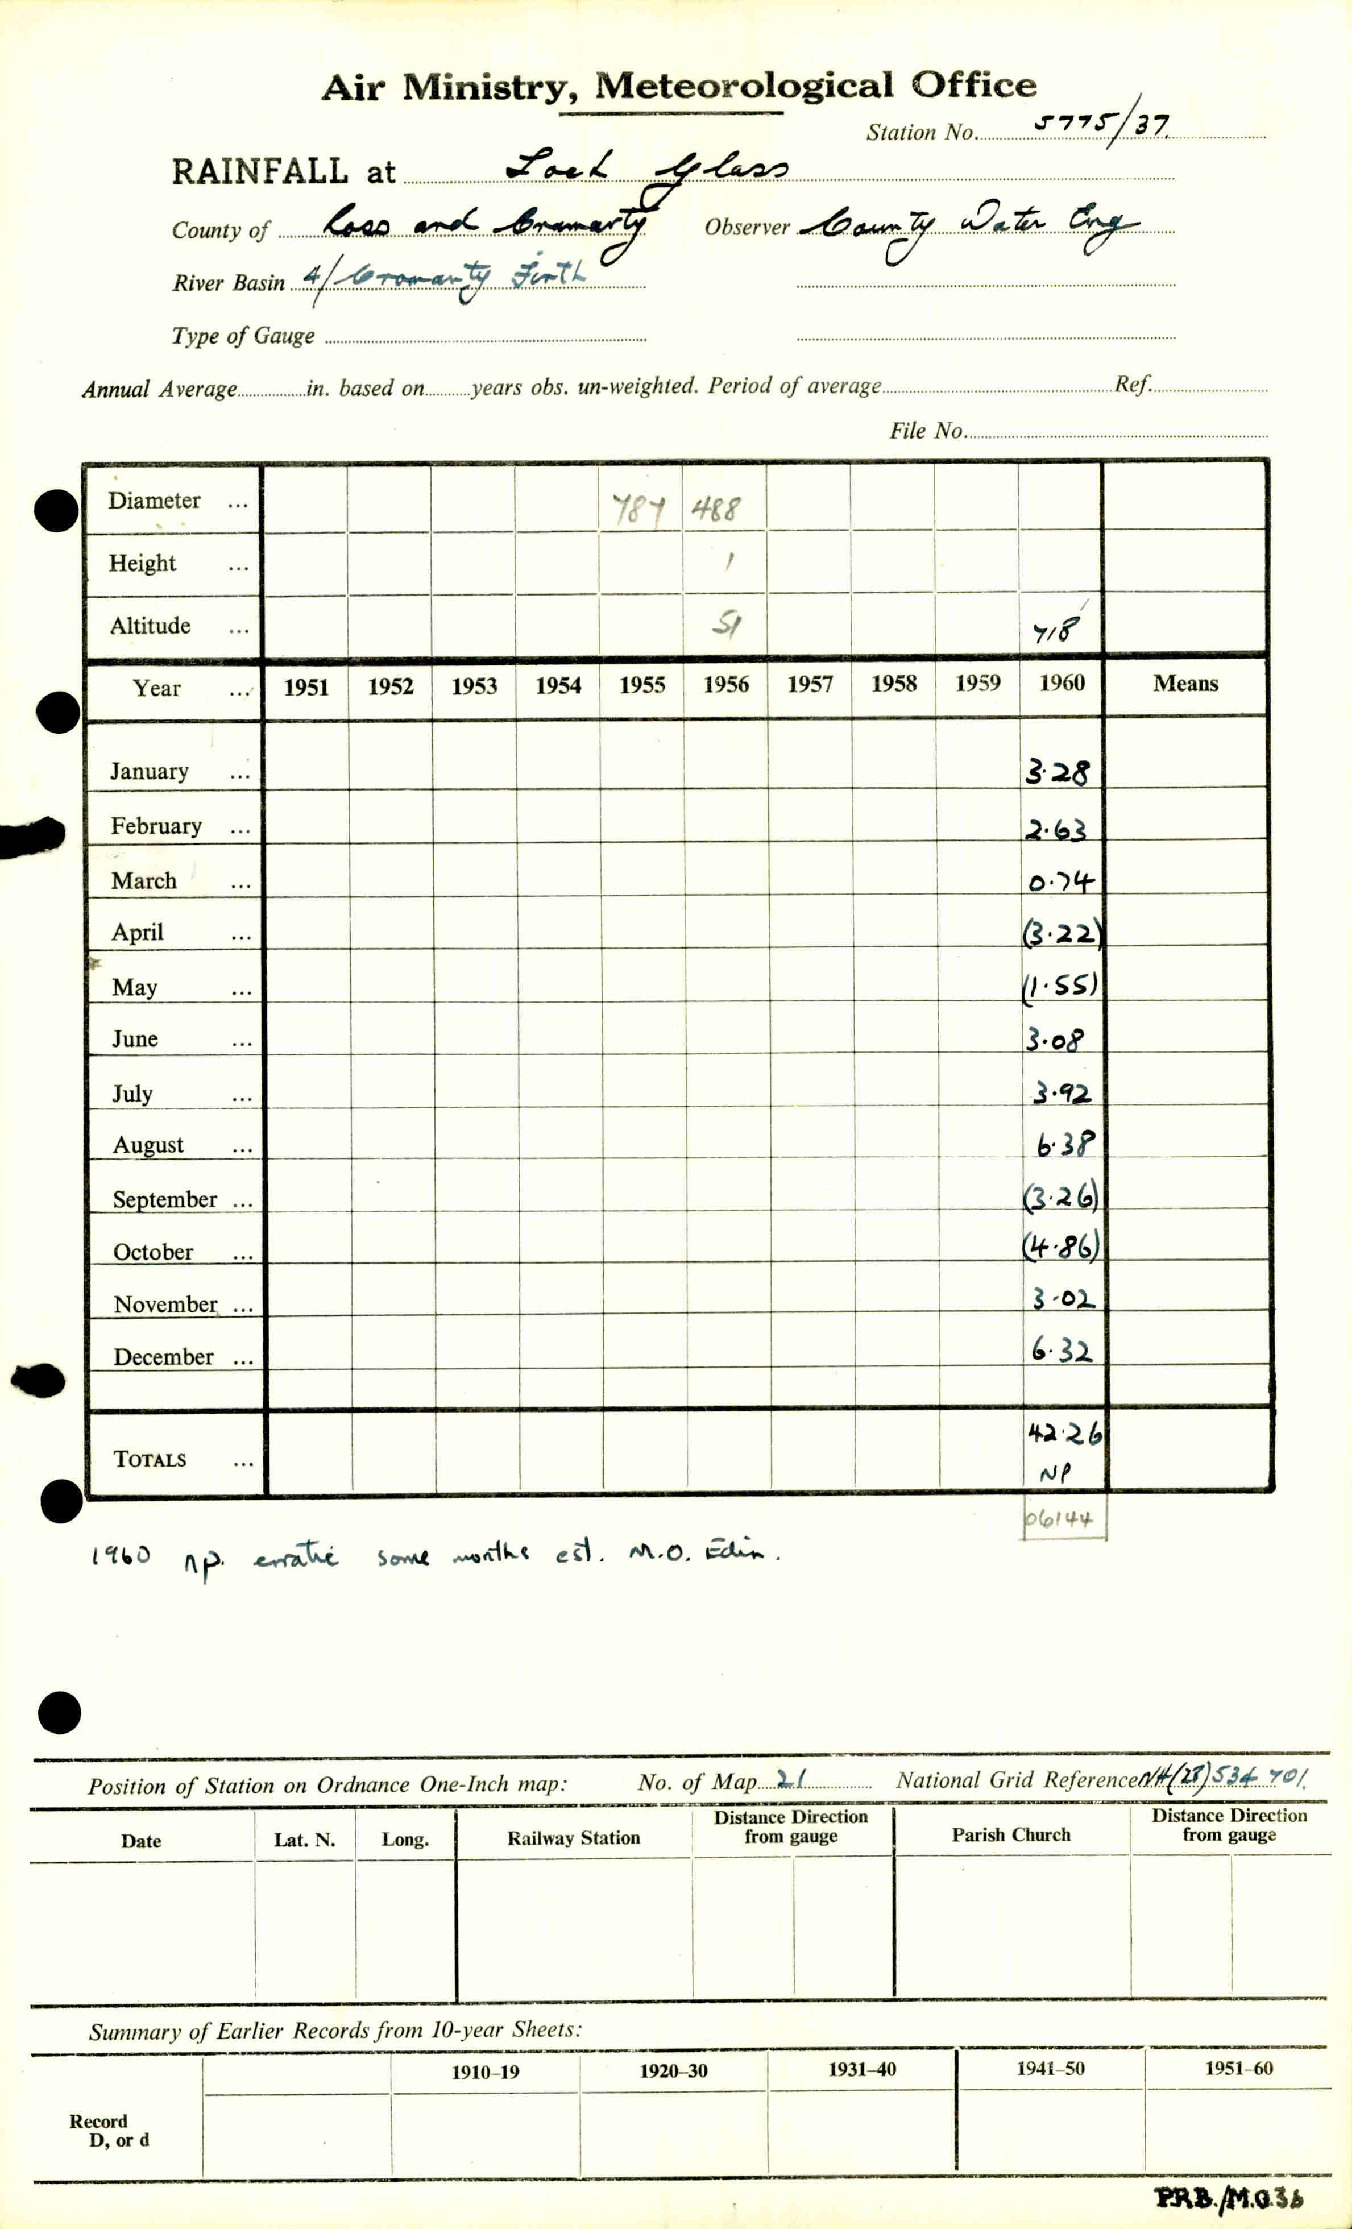 Air Ministry, Meteorological Office
Station No. 5775/37.
RAINFALL at Loch Glass
County of Ross and Cromarty Observer County Water Eng
River Basin 4/ Cromarty Firth
Type of Gauge
Annual Average in. based on years obs. un-weighted. Period of average Ref.
File No.
Diameter ... 787 488
Height ... 1
Altitude ... 51 718'
Year ... 1951 1952 1953 1954 1955 1956 1957 1958 1959 1960 Means
January ... 3.28
February ... 2.63
March ... 0.74
April ... (3.22)
May ... (1.55)
June ... 3.08
July ... 3.92
August ... 6.38
September ... (3.26)
October ... (4.86)
November ... 3.02
December ... 6.32
TOTALS ... 42.26
NP
06144
1960 np. erratic some months est. M.O. Edin.
Position of Station on Ordnance One-Inch map: No. of Map 21 National Grid Reference NH(28)534 701.
Date Lat. N. Long. Railway Station Distance Direction from gauge Parish Church Distance Direction from gauge
Summary of Earlier Records from 10-year Sheets:
1910-19 1920-30 1931-40 1941-50 1951-60
Record
D, or d
PRB./M.O.36